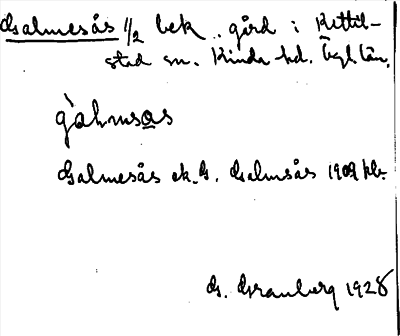 Galmesås 1/2 bek. gård i Kettil-
stad sn. Kinda hd. Ögl. län.
gàlmsas
Galmesås ek. G. Galmsås 1909
G. Granberg 1928